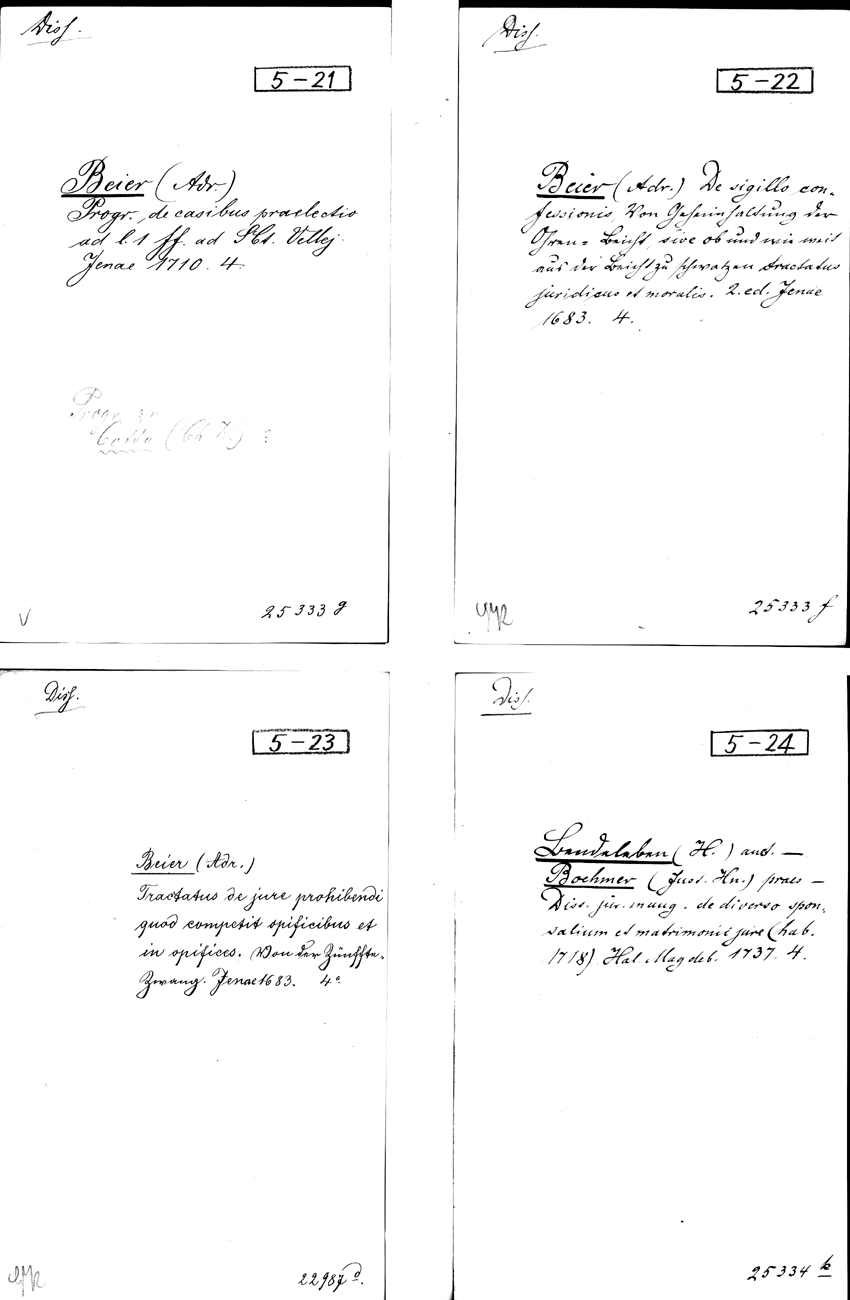 Diss.
5-21
Beier (Adr.)
Progr. de casibus praelectio
ad l. 1 ff. ad SCt. Vellej.
Jenae 1710. 4.
Progr. zu
Cotta (Ch. H.) ?
V
25333 g
Diss.
5-22
Beier (Adr.) De sigillo con-
fessionis, Von Geheimhaltung der
Ohren-Beicht, sive ob und wie weit
aus der Beicht zu schwatzen tractatus
juridicus et moralis. 2. ed. Jenae
1683. 4.
25333 f
Diss.
5-23
Beier (Adr.)
Tractatus de jure prohibendi
quod competit opificibus et
in opifices. Von der Zünffte-
Zwang. Jenae 1683. 4°
22987 d.
Diss.
5-24
Bendeleben (H.) auct. —
Boehmer (Just. Hn.) praes —
Diss. jur. inaug. de diverso spon-
salium et matrimonii jure (hab.
1718) Hal. Magdeb. 1737. 4.
25334 k